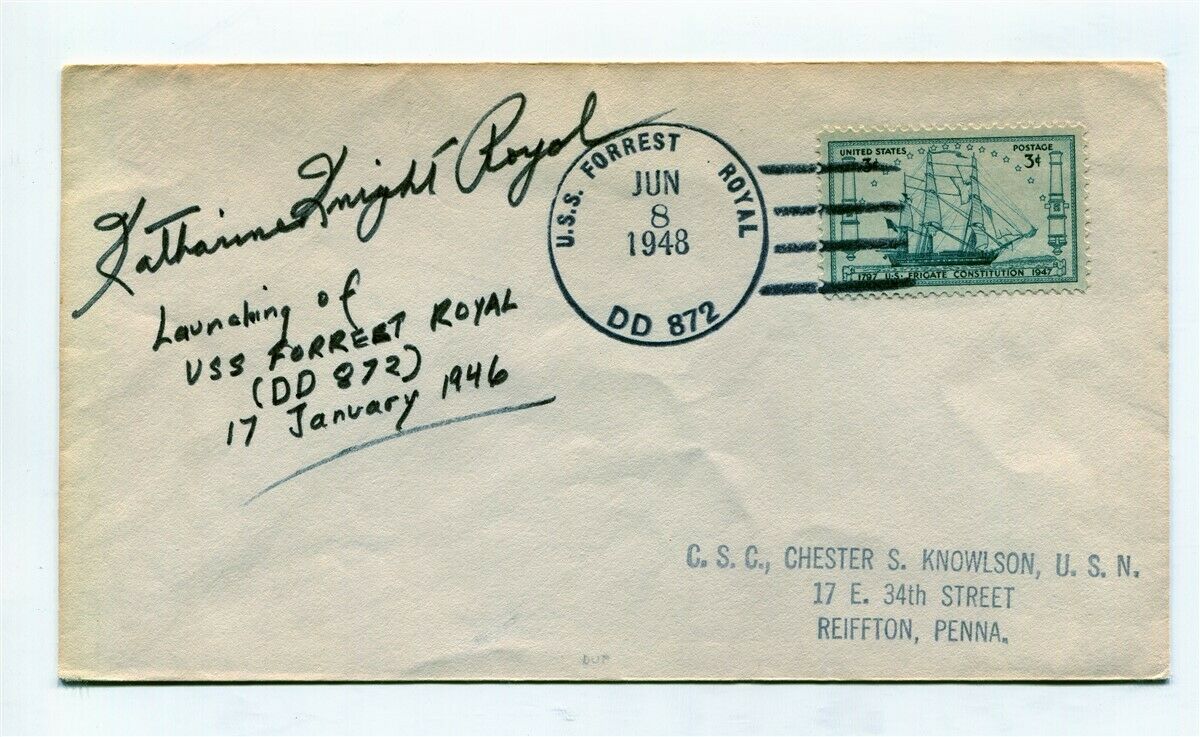 Katharine Knight Royal
Launching of
USS FORREST ROYAL
(DD 872)
17 January 1946
U.S.S. FORREST ROYAL
JUN
8
1948
DD 872
UNITED STATES POSTAGE
3¢ 3¢
1797 U.S. FRIGATE CONSTITUTION 1947
C. S. C., CHESTER S. KNOWLSON, U. S. N.
17 E. 34th STREET
REIFFTON, PENNA.
DUP